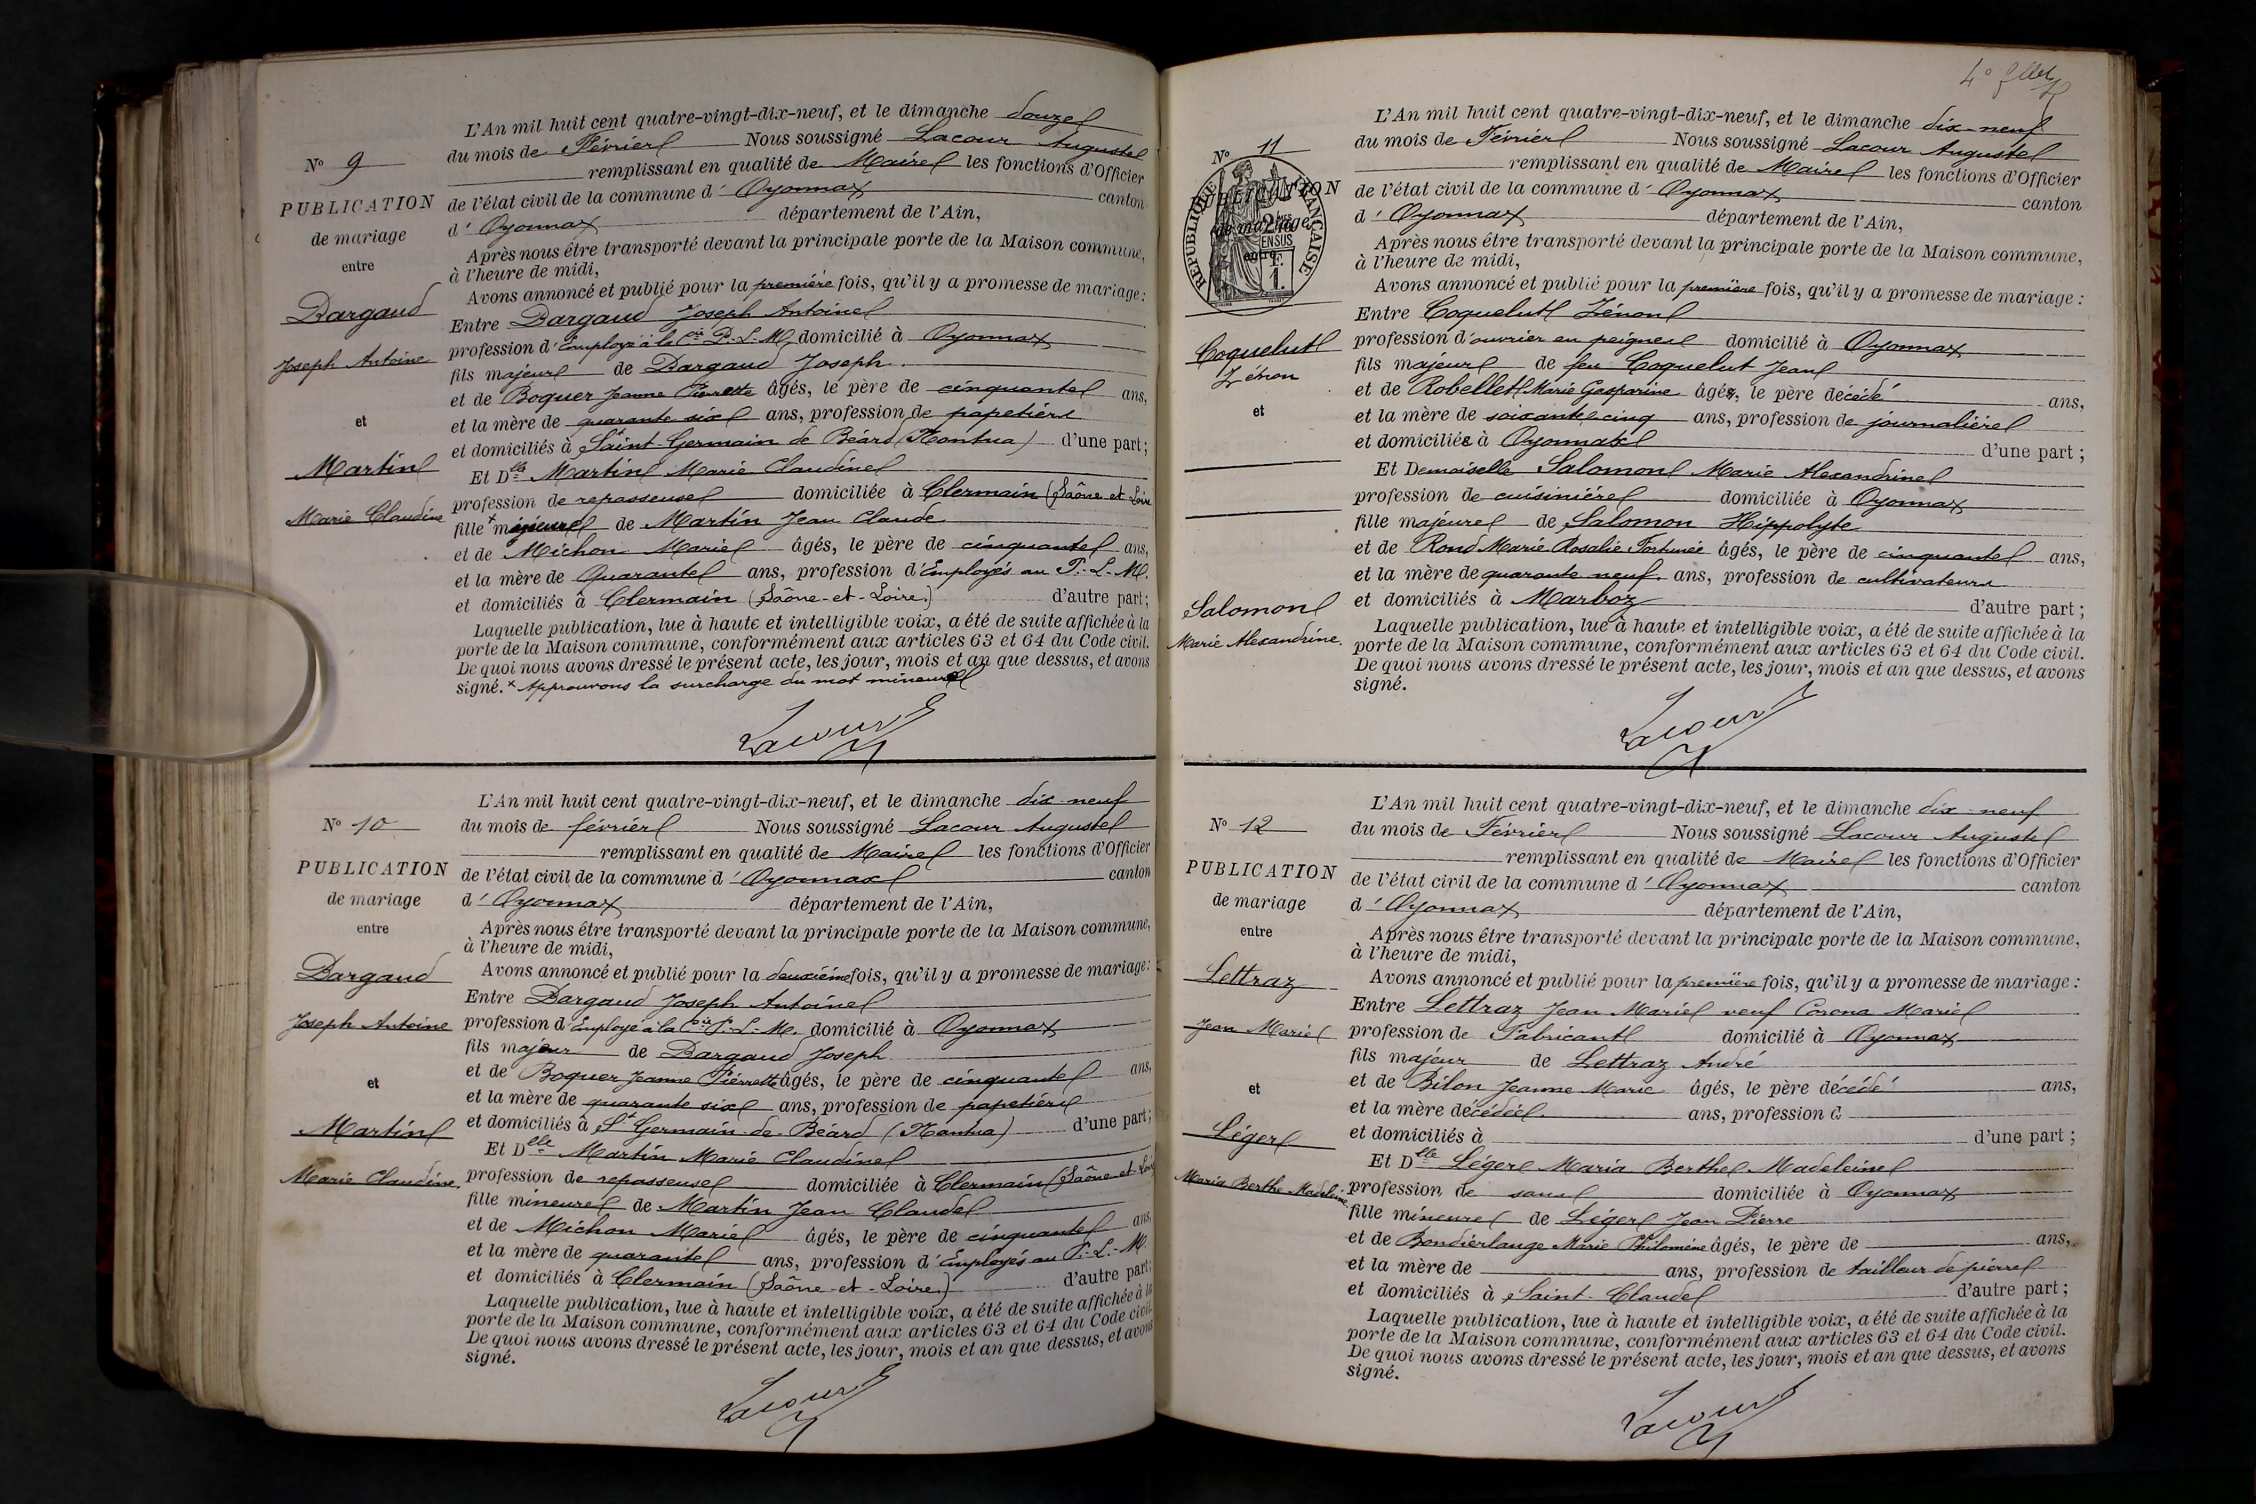 L'An mil huit cent quatre-vingt-dix-neuf, et le dimanche douze
N° 9
du mois de Février Nous soussigné Lacour Auguste
remplissant en qualité de Maire les fonctions d'Officier
PUBLICATION
de l'état civil de la commune d' Oyonnax canton
de mariage
d' Oyonnax département de l'Ain,
entre
Après nous être transporté devant la principale porte de la Maison commune,
à l'heure de midi,
Avons annoncé et publié pour la première fois, qu'il y a promesse de mariage :
Dargaud
Entre Dargaud Joseph Antoine
profession d' Employé à la Cie P.-L.-M. domicilié à Oyonnax
Joseph Antoine
fils majeur de Dargaud Joseph
et de Boquer Jeanne Pierrette âgés, le père de cinquante ans,
et
et la mère de quarante six ans, profession de papetiers
et domiciliés à Saint Germain de Béard (Nantua) d'une part ;
Martin
Et Dlle Martin Marie Claudine
profession de repasseuse domiciliée à Clermain (Saône-et-Loire
Marie Claudine
fille × mineure de Martin Jean Claude
et de Michon Marie âgés, le père de cinquante ans,
et la mère de Quarante ans, profession d' Employés au P.-L.-M.
et domiciliés à Clermain (Saône-et-Loire.) d'autre part ;
Laquelle publication, lue à haute et intelligible voix, a été de suite affichée à la
porte de la Maison commune, conformément aux articles 63 et 64 du Code civil.
De quoi nous avons dressé le présent acte, les jour, mois et an que dessus, et avons
signé. × Approuvons la surcharge du mot mineure
Lacour
L'An mil huit cent quatre-vingt-dix-neuf, et le dimanche dix neuf
N° 10
du mois de février Nous soussigné Lacour Auguste
remplissant en qualité de Maire les fonctions d'Officier
PUBLICATION
de l'état civil de la commune d' Oyonnax canton
de mariage
d' Oyonnax département de l'Ain,
entre
Après nous être transporté devant la principale porte de la Maison commune,
à l'heure de midi,
Avons annoncé et publié pour la deuxième fois, qu'il y a promesse de mariage :
Dargaud
Entre Dargaud Joseph Antoine
Joseph Antoine
profession d' Employé à la Cie P.-L.-M. domicilié à Oyonnax
fils majeur de Dargaud Joseph
et de Boquer Jeanne Pierrette âgés, le père de cinquante ans,
et
et la mère de quarante six ans, profession de papetiers
et domiciliés à St Germain-de-Béard (Nantua) d'une part ;
Martin
Et Dlle Martin Marie Claudine
Marie Claudine.
profession de repasseuse domiciliée à Clermain (Saône-et-Loire
fille mineure de Martin Jean Claude
et de Michon Marie âgés, le père de cinquante ans,
et la mère de quarante ans, profession d' Employés au P.-L.-M.
et domiciliés à Clermain (Saône-et-Loire.) d'autre part ;
Laquelle publication, lue à haute et intelligible voix, a été de suite affichée à la
porte de la Maison commune, conformément aux articles 63 et 64 du Code civil.
De quoi nous avons dressé le présent acte, les jour, mois et an que dessus, et avons
signé.
Lacour
4°
L'An mil huit cent quatre-vingt-dix-neuf, et le dimanche dix-neuf
N° 11
du mois de Février Nous soussigné Lacour Auguste
remplissant en qualité de Maire les fonctions d'Officier
PUBLICATION
RÉPUBLIQUE FRANÇAISE
de l'état civil de la commune d' Oyonnax canton
de mariage
d' Oyonnax département de l'Ain,
entre
Après nous être transporté devant la principale porte de la Maison commune,
à l'heure de midi,
Avons annoncé et publié pour la première fois, qu'il y a promesse de mariage :
Entre Coquelut Zénon
Coquelut
profession d' ouvrier en peignes domicilié à Oyonnax
Zénon
fils majeur de feu Coquelut Jean
et de Robellet Marie Gasparine âgés, le père décédé ans,
et
et la mère de soixante cinq ans, profession de journalière
et domiciliés à Oyonnax d'une part ;
Et Demoiselle Salomon Marie Alexandrine
profession de cuisinière domiciliée à Oyonnax
fille majeure de Salomon Hippolyte
et de Rond Marie Rosalie Fortunée âgés, le père de cinquante ans,
et la mère de quarante neuf. ans, profession de cultivateurs
Salomon
et domiciliés à Marboz d'autre part ;
Marie Alexandrine.
Laquelle publication, lue à haute et intelligible voix, a été de suite affichée à la
porte de la Maison commune, conformément aux articles 63 et 64 du Code civil.
De quoi nous avons dressé le présent acte, les jour, mois et an que dessus, et avons
signé.
Lacour
L'An mil huit cent quatre-vingt-dix-neuf, et le dimanche dix neuf
N° 12
du mois de Février Nous soussigné Lacour Auguste
remplissant en qualité de Maire les fonctions d'Officier
PUBLICATION
de l'état civil de la commune d' Oyonnax canton
de mariage
d' Oyonnax département de l'Ain,
entre
Après nous être transporté devant la principale porte de la Maison commune,
à l'heure de midi,
Lettraz
Avons annoncé et publié pour la première fois, qu'il y a promesse de mariage :
Entre Lettraz Jean Marie veuf Corona Marie
Jean Marie
profession de Fabricant domicilié à Oyonnax
fils majeur de Lettraz André
et
et de Bilon Jeanne Marie âgés, le père décédé ans,
et la mère décédée ans, profession d
Léger
et domiciliés à d'une part ;
Et Dlle Léger Maria Berthe Madeleine
Maria Berthe Madeleine
profession de sans domiciliée à Oyonnax
fille mineure de Léger Jean Pierre
et de Bondierlange Marie Philomène âgés, le père de ans,
et la mère de ans, profession de tailleur de pierre
et domiciliés à Saint-Claude d'autre part ;
Laquelle publication, lue à haute et intelligible voix, a été de suite affichée à la
porte de la Maison commune, conformément aux articles 63 et 64 du Code civil.
De quoi nous avons dressé le présent acte, les jour, mois et an que dessus, et avons
signé.
Lacour